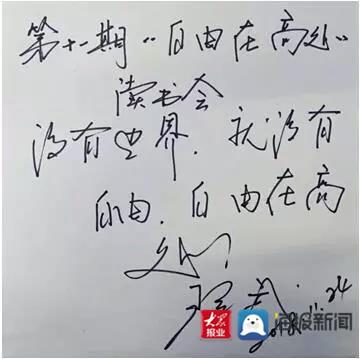 第十一期“自由在高处”
读书会
没有边界，就没有
自由，自由在高
处！
2018.11.24
大众报业
海报新闻